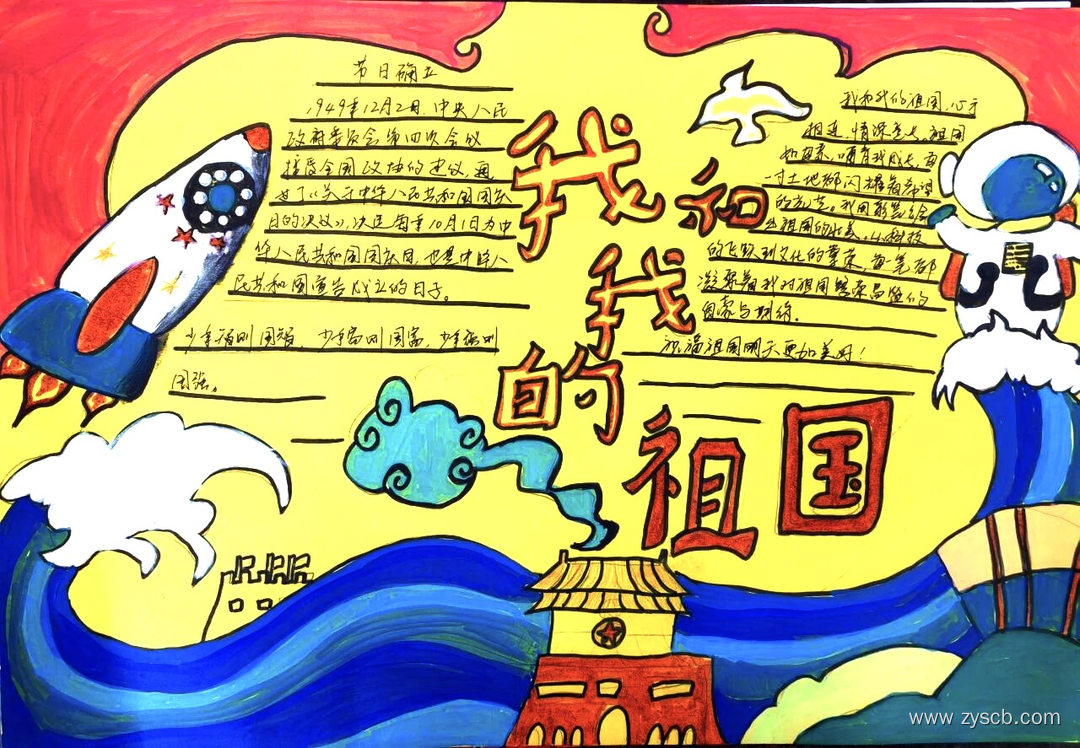 节日确立
1949年12月2日,中央人民
政府委员会第四次会议
接受全国政协的建议,通
过了《关于中华人民共和国国庆
日的决议》,决定每年10月1日为中
华人民共和国国庆日,也是中华人
民共和国宣告成立的日子。
少年智则国智,少年富则国富,少年强则
国强。
我和
我
的
祖国
我和我的祖国,心手
相连,情深意长,祖国
如母亲,哺育我成长,每
一寸土地都闪耀着希望
的光芒。我国
祖国的从科技
的飞跃到文化的繁荣,每一笔都
凝聚着我对祖国繁荣昌盛的
自豪与期盼。
祝福祖国明天更加美好!
www.zyscb.com